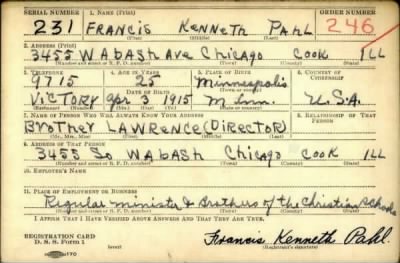 SERIAL NUMBER 1. NAME (Print) ORDER NUMBER
231 FRANCIS KENNETH PAHL 246
(First) (Middle) (Last)
2. ADDRESS (Print)
3452 WABASH AVE CHICAGO COOK ILL
(Number and street or R. F. D. number) (Town) (County) (State)
3. TELEPHONE 4. AGE IN YEARS 5. PLACE OF BIRTH 6. COUNTRY OF CITIZENSHIP
9715 25 Minneapolis
DATE OF BIRTH (Town or county)
VICTORY Apr 3 1915 Minn. U.S.A.
(Exchange) (No.) (Mo.) (Day) (Yr.) (State or country)
7. NAME OF PERSON WHO WILL ALWAYS KNOW YOUR ADDRESS 8. RELATIONSHIP OF THAT PERSON
Brother LAWRENCE (DIRECTOR)
(Mr., Mrs., Miss) (First) (Middle) (Last)
9. ADDRESS OF THAT PERSON
3455 So WABASH Chicago COOK ILL
(Number and street or R. F. D. number) (Town) (County) (State)
10. EMPLOYER'S NAME
11. PLACE OF EMPLOYMENT OR BUSINESS
Regular minister Brothers of the Christian Schools
(Number and street or R. F. D. number) (Town) (County) (State)
I AFFIRM THAT I HAVE VERIFIED ABOVE ANSWERS AND THAT THEY ARE TRUE.
REGISTRATION CARD
D. S. S. Form 1 (over) Francis Kenneth Pahl.
(Registrant's signature)